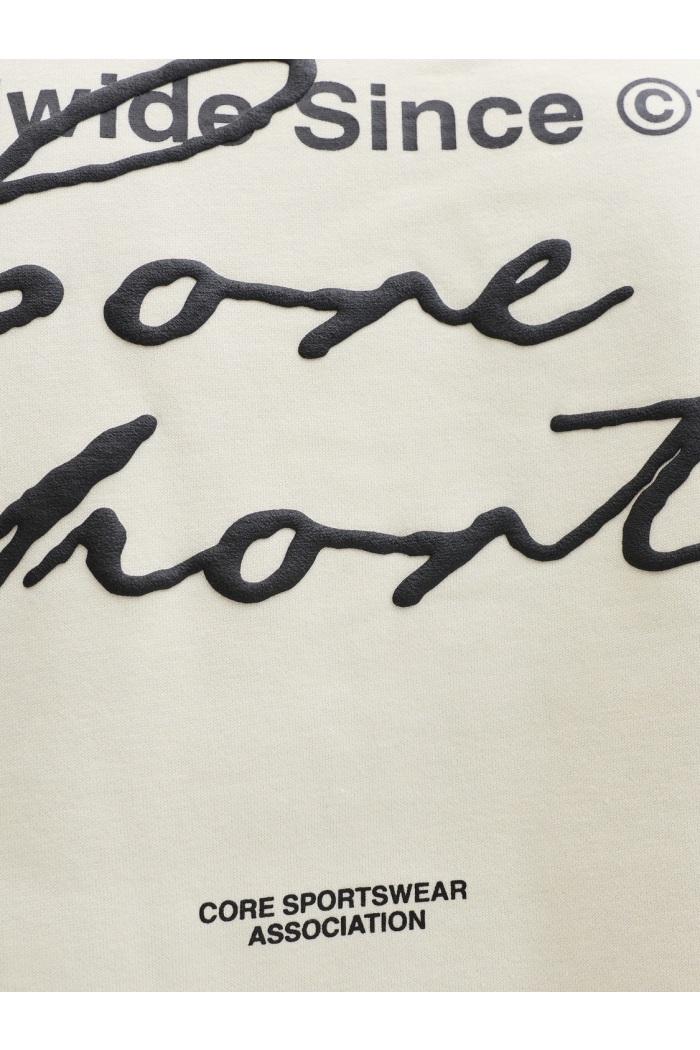 wide Since ©
ore
hort
CORE SPORTSWEAR
ASSOCIATION